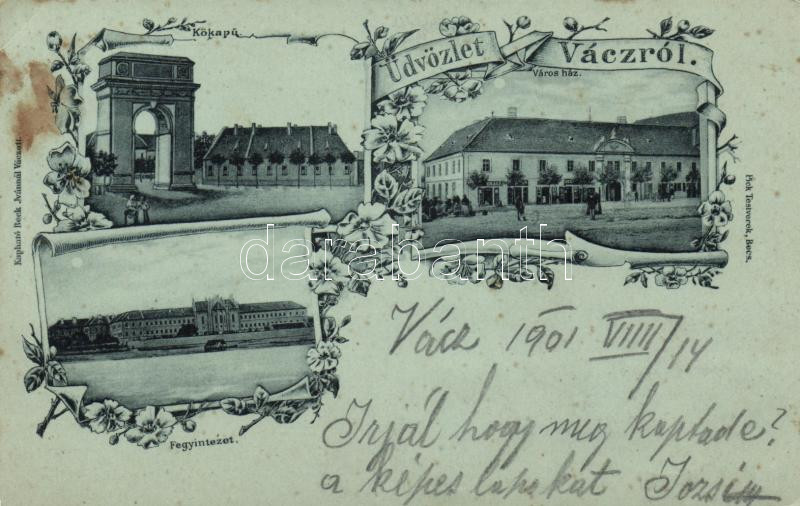 Kőkapú.
Üdvözlet Váczról.
Város ház.
Kapható Beck Jvánnál Váczott.
Pick Testverek, Becs.
Fegyintezet.
darabanth.com
Vácz 1901 VIIII/14
Irjál hogy meg kaptade?
a képes lapokat